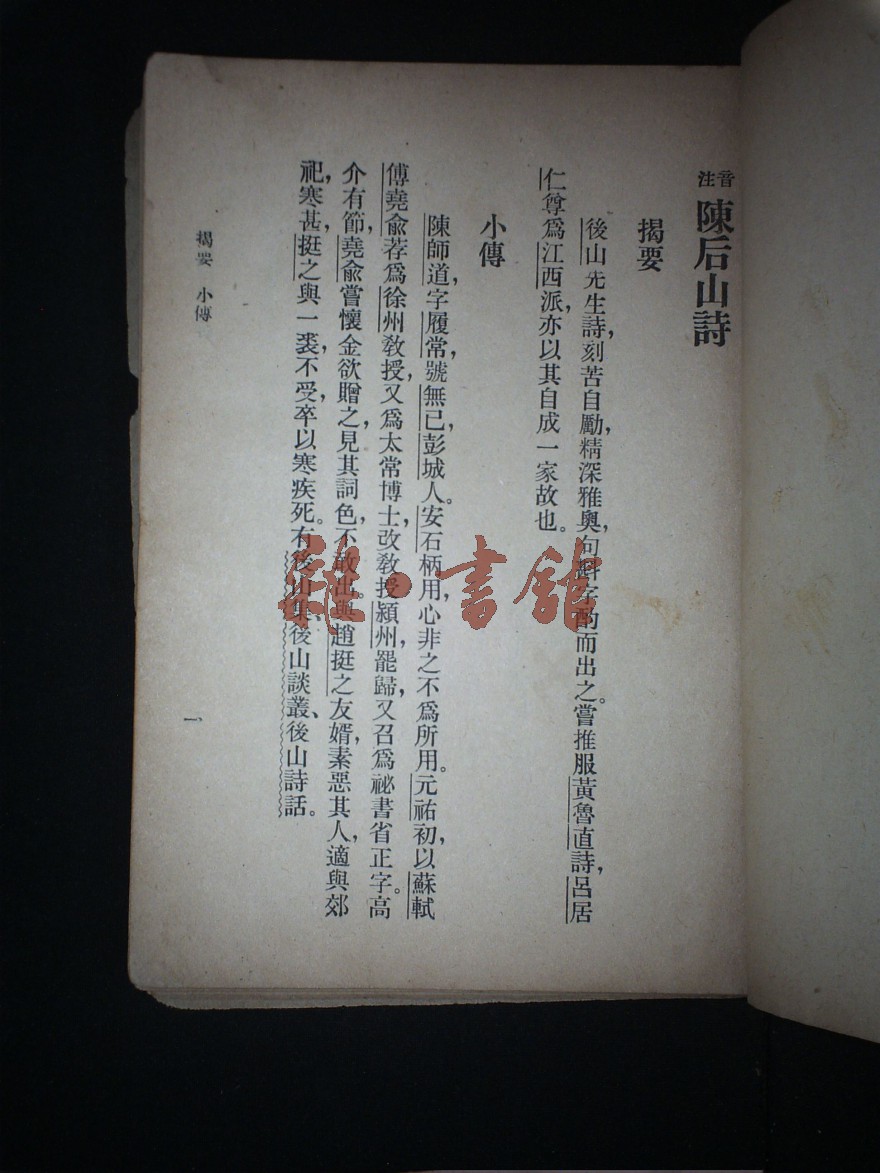 音注
陳后山詩
揭要
後山先生詩，刻苦自勵，精深雅奧，句斟字酌而出之。嘗推服黃魯直詩，呂居
仁尊爲江西派，亦以其自成一家故也。
小傳
陳師道，字履常，號無已，彭城人。安石柄用，心非之不爲所用。元祐初，以蘇軾
傅堯俞荐爲徐州敎授，又爲太常博士，改敎授潁州，罷歸，又召爲祕書省正字。高
介有節，堯俞嘗懷金欲贈之，見其詞色，不敢出。與趙挺之友婿，素惡其人，適與郊
祀，寒甚，挺之與一裘，不受，卒以寒疾死。有後山集、後山談叢、後山詩話。
揭要 小傳
一
雜·書館